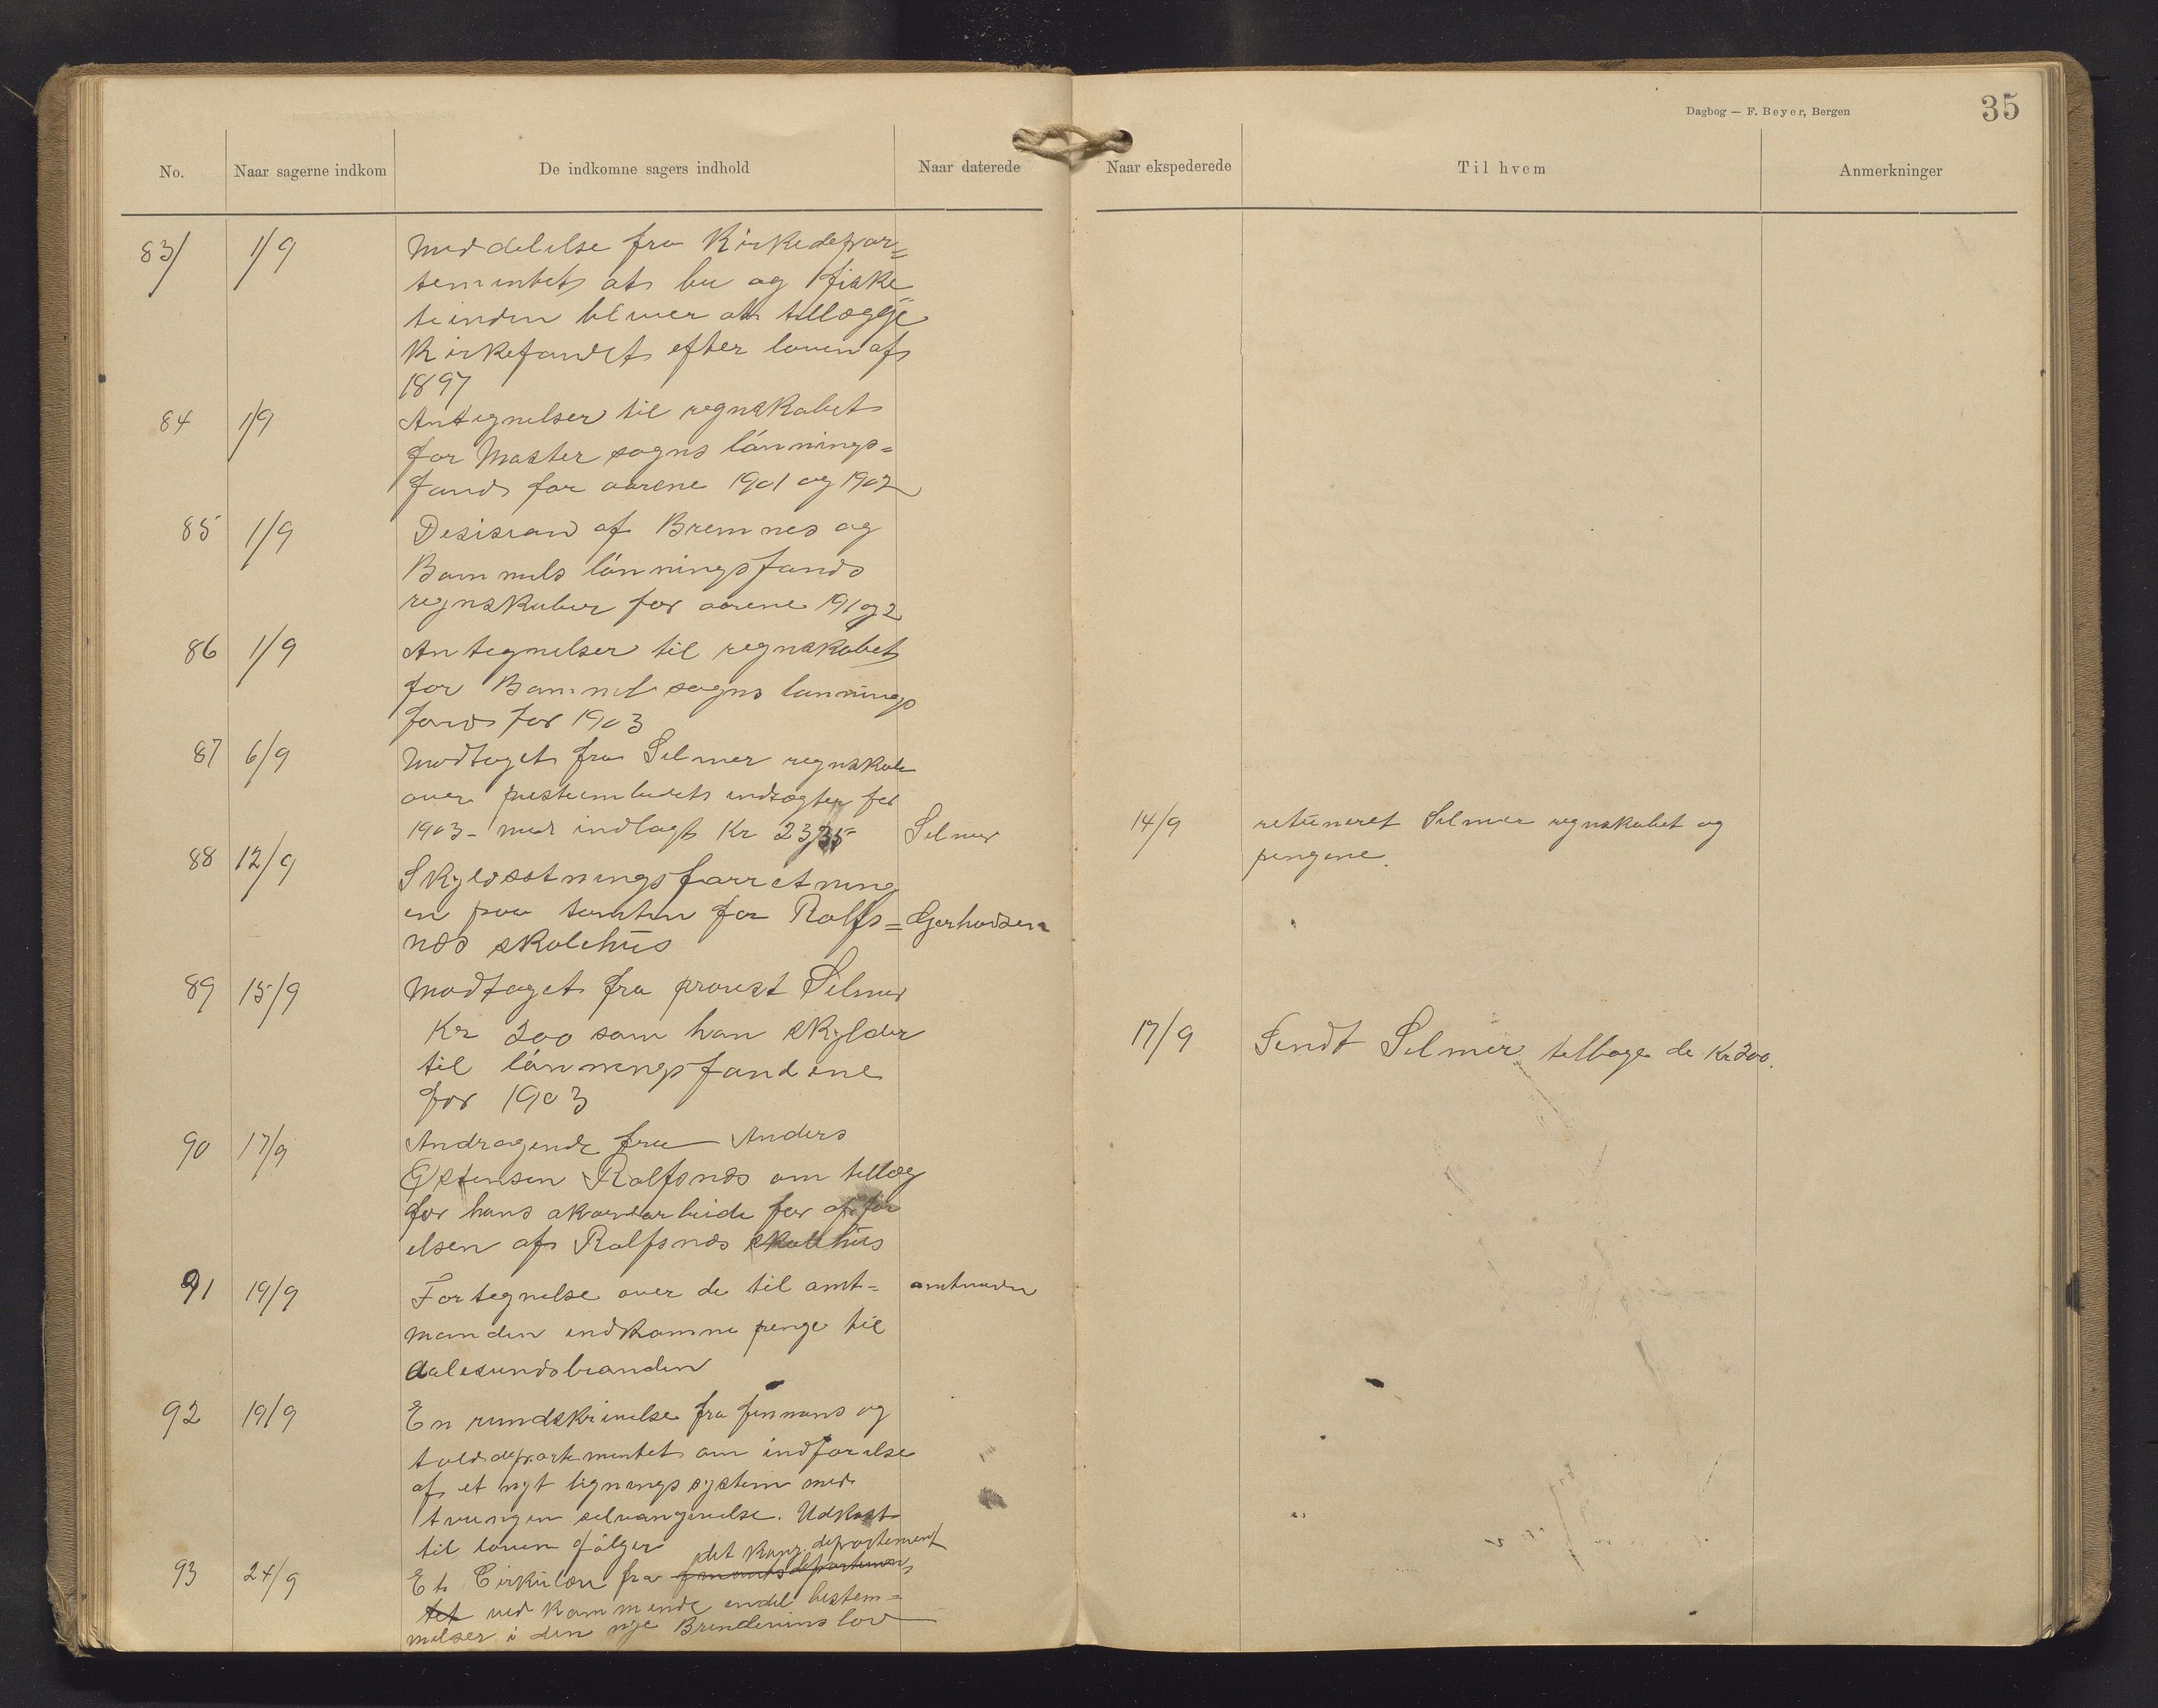 Dagbog — F. Beyer, Bergen
35
No.
Naar sagerne indkom
De indkomne sagers indhold
Naar daterede
Naar ekspederede
Til hvem
Anmerkninger
83/ 1/9 Meddelelse fra Kirkedepar=
tementet at bu og fiske
tienden bliver at tillægge
Kirkefondet efter loven af
1897
84 1/9 Antegnelser til regnskabet
for Moster sogns lønnings=
fond for aarene 1901 og 1902
85 1/9 Desision af Bremnes og
Bømmels lønningsfonds
regnskaber for aarene 191 og 2
86 1/9 Antegnelser til regnskabet
for Bømmel sogns lønnings
fond for 1903
87 6/9 Modtaget fra Selmer regnskab
over presteembedets indtægter for
1903 - med indlagt Kr 23,35 Selmer
14/9 retuneret Selmer regnskabet og
pengene.
88 12/9 Skyldsetningsforretning
en paa tomten for Rolfs= Gjerhardsen
næs skolehus
89 15/9 Modtaget fra provst Selmer
Kr 200 som han skylder
til lønningsfondene
for 1903
17/9 Sendt Selmer tilbage de Kr 200.
90 17/9 Andragende fra Anders
Østensen Rolfsnæs om tillæg
for hans akordarbeide for opfør
elsen af Rolfsnæs skolehus
91 19/9 Fortegnelse over de til amt= amtmanden
manden indkomne penge til
Aalesundsbranden
92 19/9 En rundskrivelse fra finnans og
tolddepartementet om indførelse
af et nyt ligningssystem med
tvungen selvangivelse. Udkast
til loven følger
det Kong. departement
93 24/9 Et Cirkulær fra finantsdepartemen
tet vedkommende endel bestem=
melser i den nye Brendevins lov